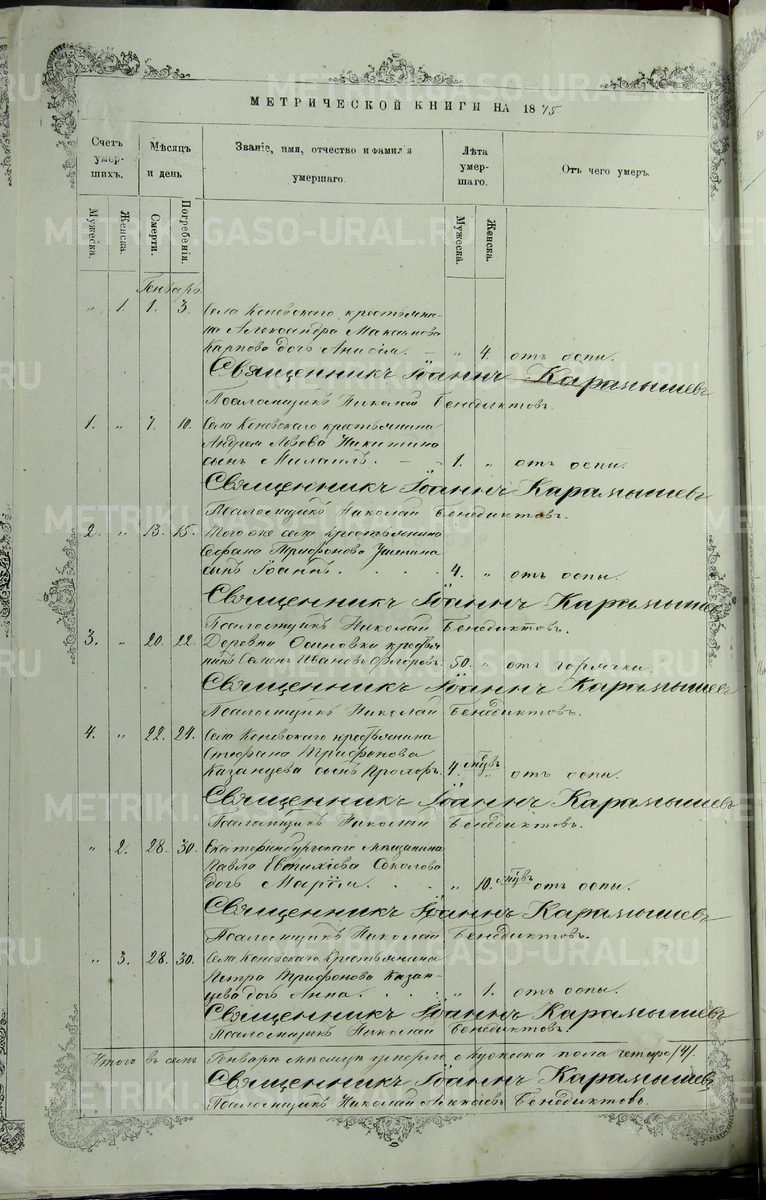 МЕТРИЧЕСКОЙ КНИГИ НА 1875
Счетъ умершихъ.
Мѣсяцъ и день
Званіе, имя, отчество и фамилія умершаго.
Лѣта умершаго.
Отъ чего умеръ.
Мужеска. Женска. Смерти. Погребенія. Мужеска. Женска.
Генварь.
" 1. 1. 3. Села Коневскаго крестьяни-
на Александра Максимова
Карпова дочь Анисія. — " 4. отъ оспы.
Священникъ Іоаннъ Карамышевъ
Псаломщикъ Николай Бенедиктовъ.
1. " 7. 10. Села Коневскаго крестьянина
Андрея Львова Никитина
сынъ Михаилъ. — 1. " отъ оспы.
Священникъ Іоаннъ Карамышевъ
Псаломщикъ Николай Бенедиктовъ.
2. " 13. 15. Того же села крестьянина
Трифонова
сынъ Іоаннъ. 4. " отъ оспы.
Священникъ Іоаннъ Карамышевъ
Псаломщикъ Николай Бенедиктовъ.
3. " 20. 22. Деревни Осиновки крестья-
нинъ Иванов 50. " отъ горячки.
Священникъ Іоаннъ Карамышевъ
Псаломщикъ Николай Бенедиктовъ.
4. " 22. 24. Села Коневскаго крестьянина
Стефана Трифонова
Казанцева сынъ Прохоръ. 4. мѣ. отъ оспы.
Священникъ Іоаннъ Карамышевъ
Псаломщикъ Николай Бенедиктовъ.
" 2. 28. 30. Екатеринбургскаго мѣщанина
Павла Евтихіева Соколова
дочь Марія. " 10. мѣ. отъ оспы.
Священникъ Іоаннъ Карамышевъ
Псаломщикъ Николай Бенедиктовъ.
" 3. 28. 30. Села Коневскаго крестьянина
Петра Трифонова Казан-
цева дочь Анна. " 1. отъ оспы.
Священникъ Іоаннъ Карамышевъ
Псаломщикъ Николай Бенедиктовъ.
Итого въ семъ Генварѣ мѣсяцѣ умерло мужеска пола четыре /4/.
Священникъ Іоаннъ Карамышевъ
Псаломщикъ Николай Алексѣевъ Бенедиктовъ.
METRIKI.GASO-URAL.RU